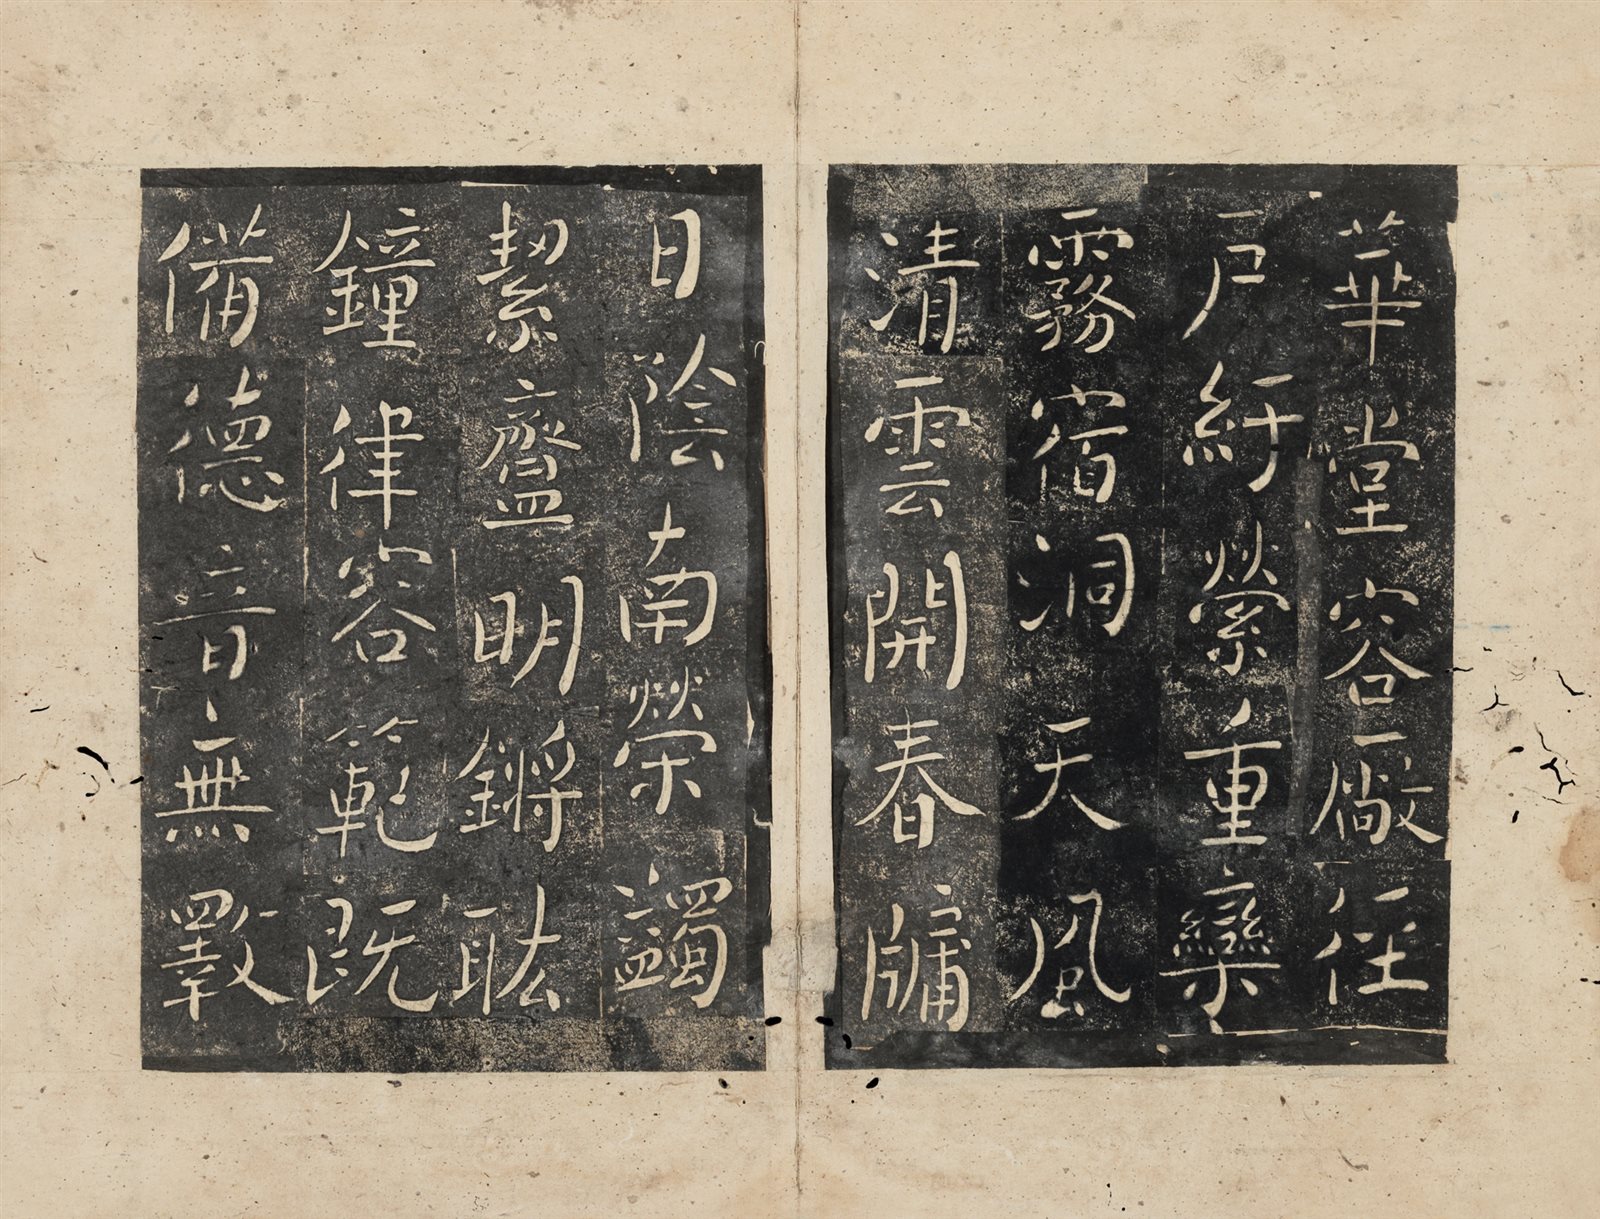 華堂容㢢廠任
戶紆縈重欒
霧宿洞天風
清雲開春牖
日陰南榮蠲
絜齍明鏘耾
鐘律容範既
備德音無斁